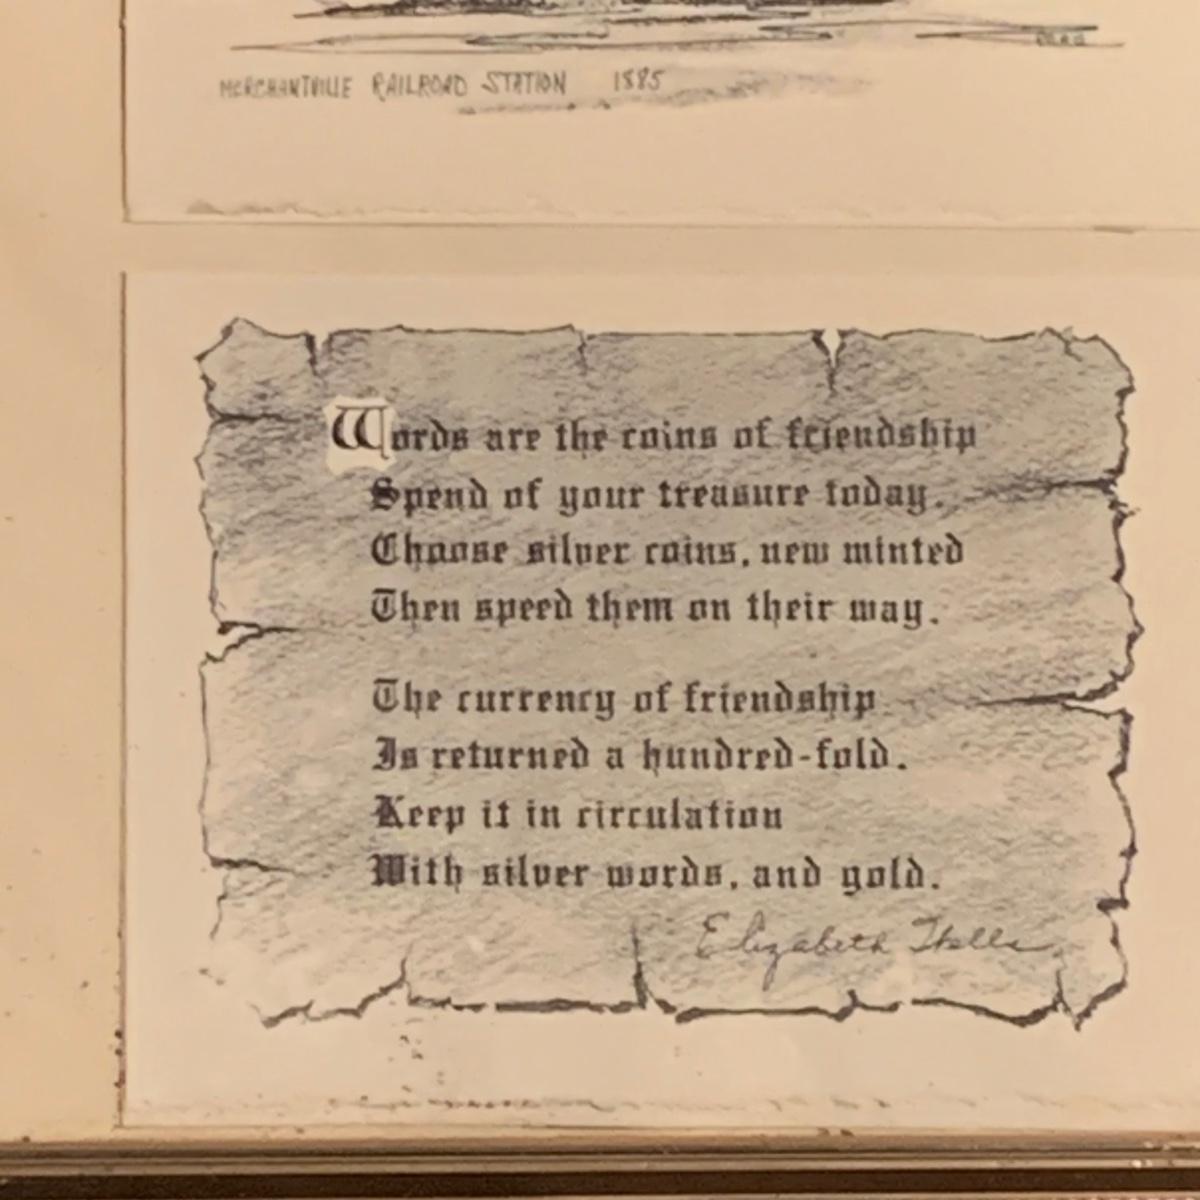 MERCHANTVILLE RAILROAD STATION 1885
Words are the coins of friendship
Spend of your treasure today.
Choose silver coins, new minted
Then speed them on their way.
The currency of friendship
Is returned a hundred-fold.
Keep it in circulation
With silver words, and gold.
Elizabeth